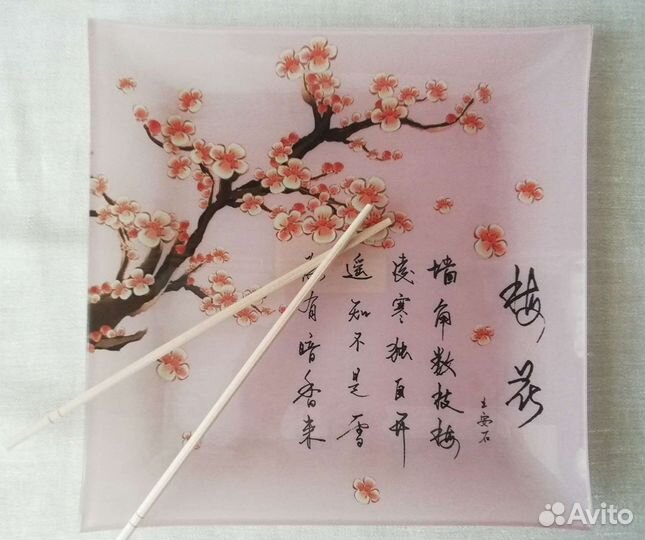 梅花
王安石
墙角数枝梅
凌寒独自开
遥知不是雪
为有暗香来
Avito